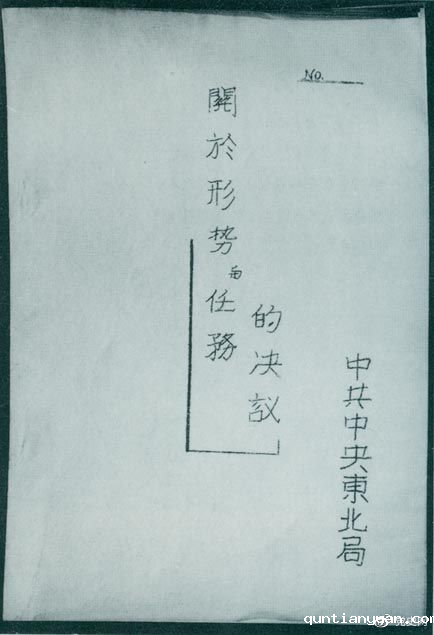 No.
中共中央東北局
的决議
關於形势与任務
quntianyuan.com